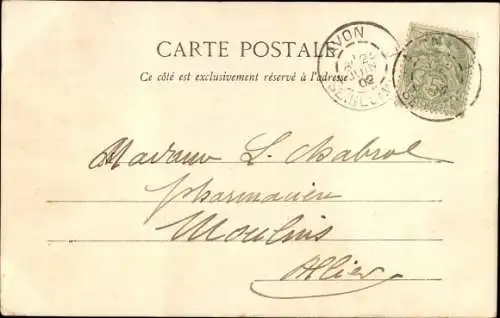 CARTE POSTALE
Ce côté est exclusivement réservé à l'adresse
AVON
JUIN
02
SEINE
Madame L. Chabrol
pharmacien
Moulins
Allier